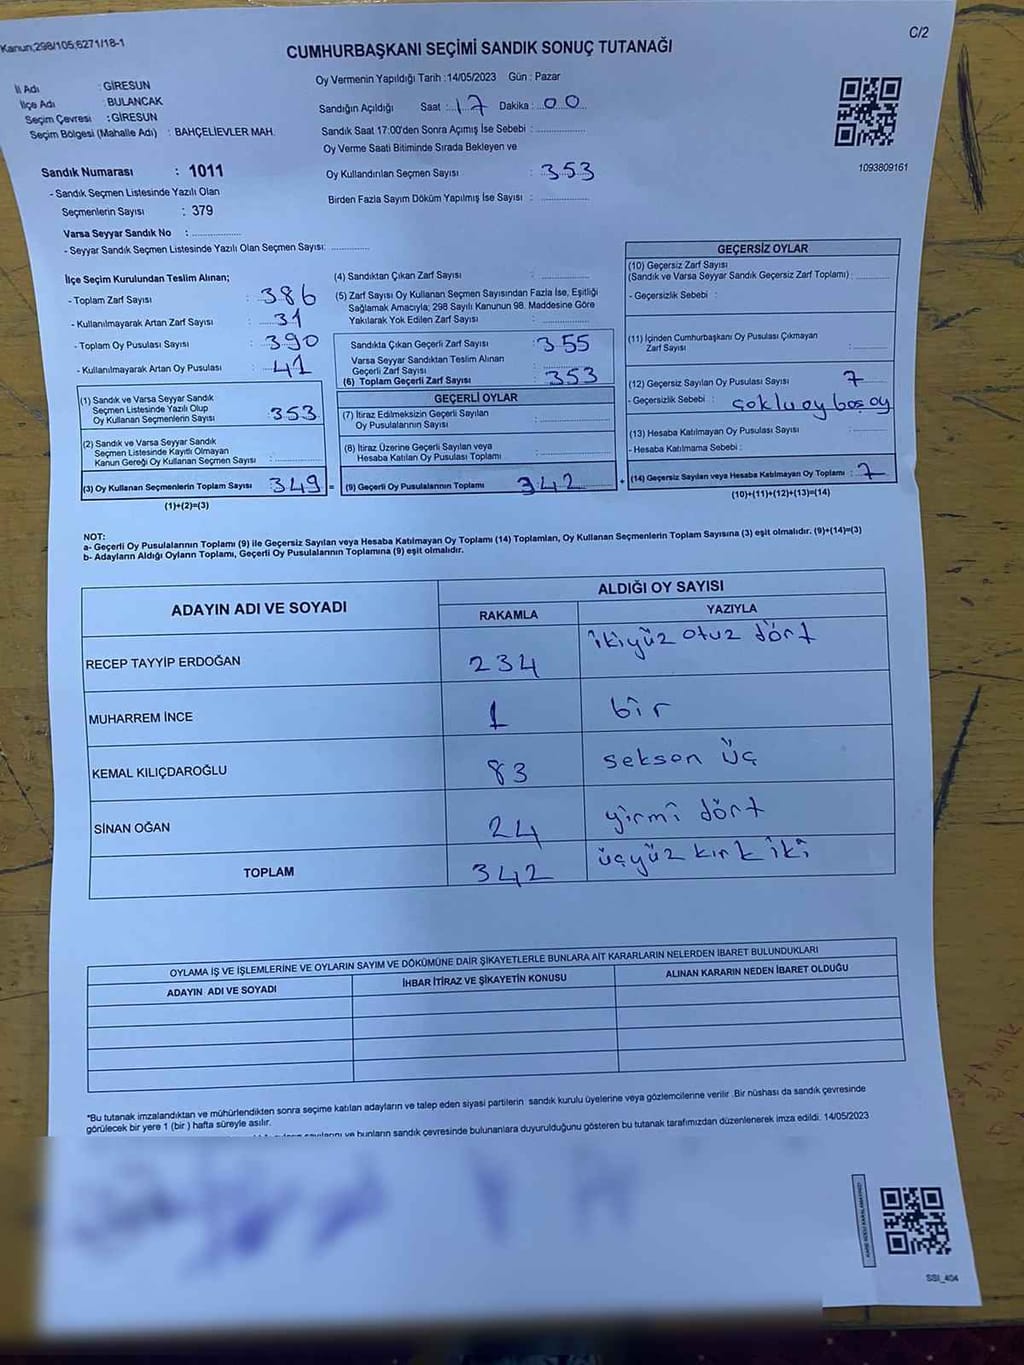 Kanun;298/105;6271/18-1
C/2
CUMHURBAŞKANI SEÇİMİ SANDIK SONUÇ TUTANAĞI
İl Adı : GİRESUN
İlçe Adı : BULANCAK
Seçim Çevresi : GİRESUN
Seçim Bölgesi (Mahalle Adı) : BAHÇELİEVLER MAH.
Oy Vermenin Yapıldığı Tarih :14/05/2023 Gün : Pazar
Sandığın Açıldığı Saat : 17 Dakika : 00
Sandık Saat 17:00'den Sonra Açımış İse Sebebi :
Oy Verme Saati Bitiminde Sırada Bekleyen ve
Oy Kullandırılan Seçmen Sayısı : 353
Birden Fazla Sayım Döküm Yapılmış İse Sayısı :
1093809161
Sandık Numarası : 1011
- Sandık Seçmen Listesinde Yazılı Olan
Seçmenlerin Sayısı : 379
Varsa Seyyar Sandık No :
- Seyyar Sandık Seçmen Listesinde Yazılı Olan Seçmen Sayısı:
İlçe Seçim Kurulundan Teslim Alınan;
- Toplam Zarf Sayısı : 386
- Kullanılmayarak Artan Zarf Sayısı : 31
- Toplam Oy Pusulası Sayısı : 390
- Kullanılmayarak Artan Oy Pusulası : 41
(1) Sandık ve Varsa Seyyar Sandık
Seçmen Listesinde Yazılı Olup
Oy Kullanan Seçmenlerin Sayısı : 353
(2) Sandık ve Varsa Seyyar Sandık
Seçmen Listesinde Kayıtlı Olmayan
Kanun Gereği Oy Kullanan Seçmen Sayısı :
(3) Oy Kullanan Seçmenlerin Toplam Sayısı : 349 =
(1)+(2)=(3)
(4) Sandıktan Çıkan Zarf Sayısı :
(5) Zarf Sayısı Oy Kullanan Seçmen Sayısından Fazla İse, Eşitliği
Sağlamak Amacıyla; 298 Sayılı Kanunun 98. Maddesine Göre
Yakılarak Yok Edilen Zarf Sayısı :
Sandıkta Çıkan Geçerli Zarf Sayısı : 355
Varsa Seyyar Sandıktan Teslim Alınan
Geçerli Zarf Sayısı :
(6) Toplam Geçerli Zarf Sayısı : 353
GEÇERLİ OYLAR
(7) İtiraz Edilmeksizin Geçerli Sayılan
Oy Pusulalarının Sayısı :
(8) İtiraz Üzerine Geçerli Sayılan veya
Hesaba Katılan Oy Pusulası Toplamı :
(9) Geçerli Oy Pusulalarının Toplamı : 342 +
GEÇERSİZ OYLAR
(10) Geçersiz Zarf Sayısı
(Sandık ve Varsa Seyyar Sandık Geçersiz Zarf Toplamı) :
- Geçersizlik Sebebi :
(11) İçinden Cumhurbaşkanı Oy Pusulası Çıkmayan
Zarf Sayısı :
(12) Geçersiz Sayılan Oy Pusulası Sayısı : 7
- Geçersizlik Sebebi : çoklu oy boş oy
(13) Hesaba Katılmayan Oy Pusulası Sayısı :
- Hesaba Katılmama Sebebi :
(14) Geçersiz Sayılan veya Hesaba Katılmayan Oy Toplamı : 7
(10)+(11)+(12)+(13)=(14)
NOT:
a- Geçerli Oy Pusulalarının Toplamı (9) ile Geçersiz Sayılan veya Hesaba Katılmayan Oy Toplamı (14) Toplamları, Oy Kullanan Seçmenlerin Toplam Sayısına (3) eşit olmalıdır. (9)+(14)=(3)
b- Adayların Aldığı Oyların Toplamı, Geçerli Oy Pusulalarının Toplamına (9) eşit olmalıdır.
ADAYIN ADI VE SOYADI
ALDIĞI OY SAYISI
RAKAMLA YAZIYLA
RECEP TAYYİP ERDOĞAN 234 ikiyüz otuz dört
MUHARREM İNCE 1 bir
KEMAL KILIÇDAROĞLU 83 seksen üç
SİNAN OĞAN 24 yirmi dört
TOPLAM 342 üçyüz kırk iki
OYLAMA İŞ VE İŞLEMLERİNE VE OYLARIN SAYIM VE DÖKÜMÜNE DAİR ŞİKAYETLERLE BUNLARA AİT KARARLARIN NELERDEN İBARET BULUNDUKLARI
ADAYIN ADI VE SOYADI İHBAR İTİRAZ VE ŞİKAYETİN KONUSU ALINAN KARARIN NEDEN İBARET OLDUĞU
*Bu tutanak imzalandıktan ve mühürlendikten sonra seçime katılan adayların ve talep eden siyasi partilerin sandık kurulu üyelerine veya gözlemcilerine verilir .Bir nüshası da sandık çevresinde
görülecek bir yere 1 (bir ) hafta süreyle asılır.
ve bunların sandık çevresinde bulunanlara duyurulduğunu gösteren bu tutanak tarafımızdan düzenlenerek imza edildi. 14/05/2023
SSI_404